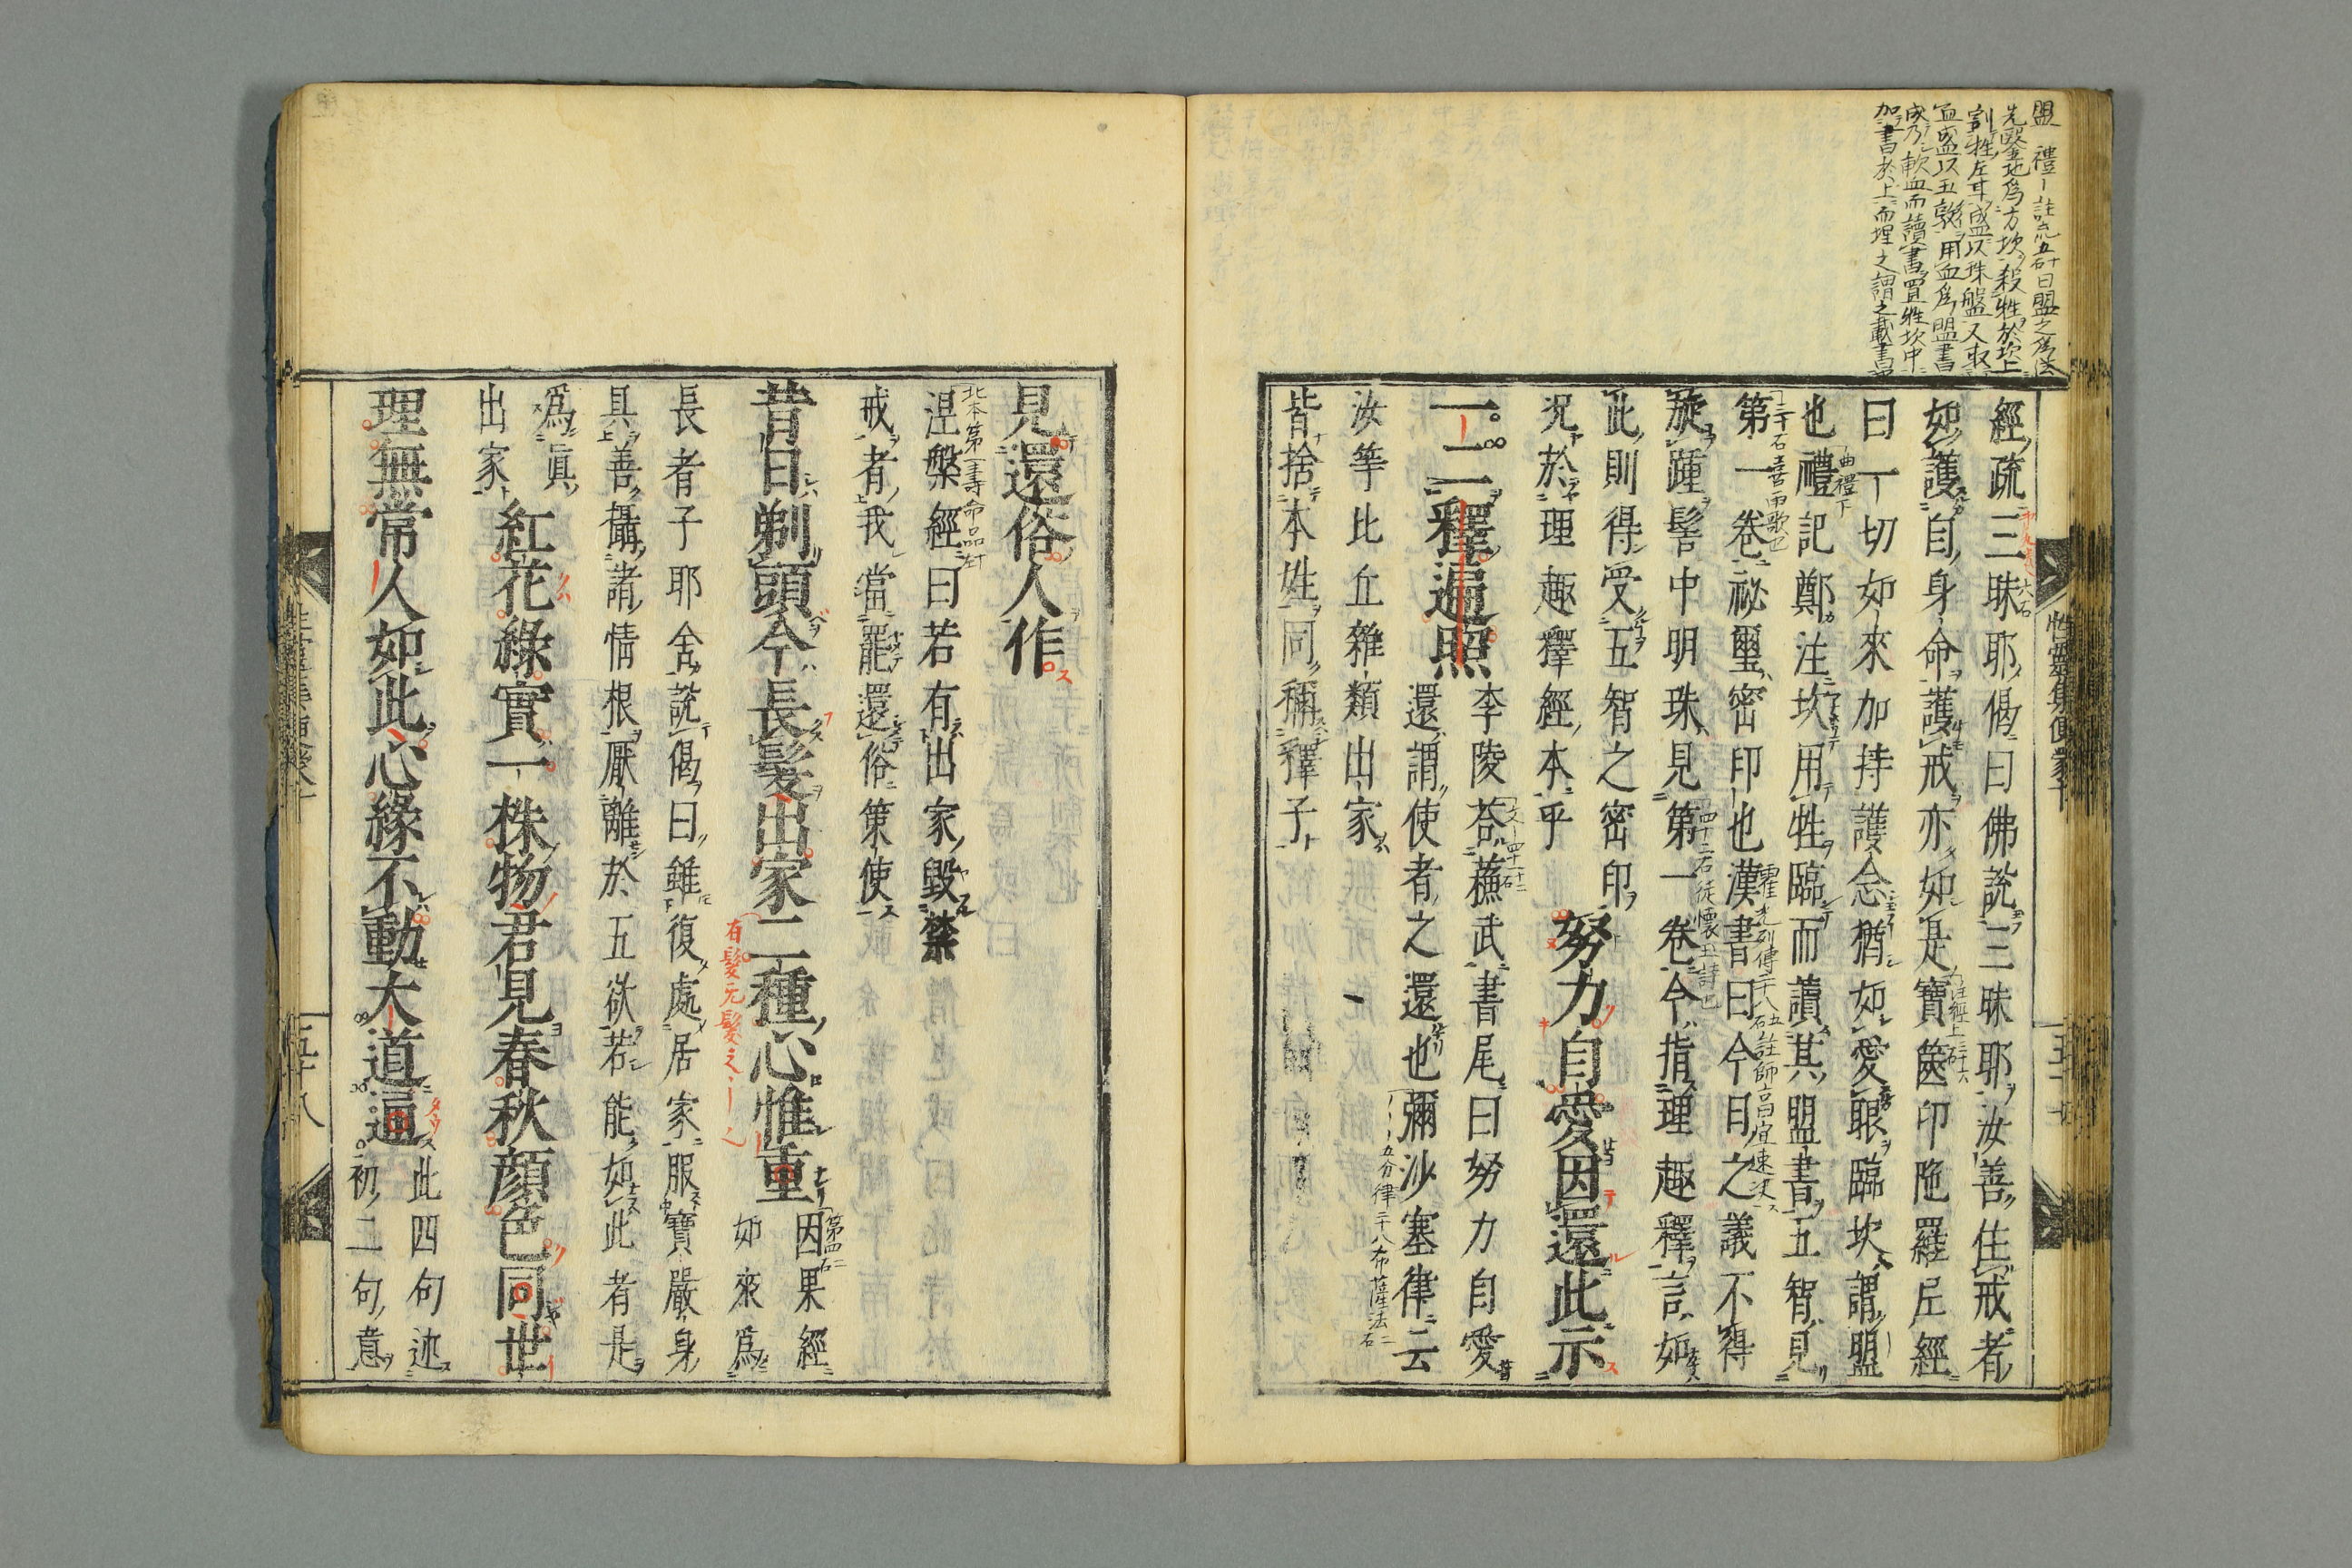 盟 禮
先鑿地爲方坎殺牲於坎上
割牲左耳盛以珠盤又取
血盛以玉敦用血爲盟書
成乃歃血而讀書置牲坎中
加書於上而埋之謂之載書
性靈集便蒙十
經疏三昧耶偈曰佛說三昧耶汝善住戒者
如護自身命護戒亦如是寶篋印陁羅尼經
曰一切如來加持護念猶如愛眼臨坎謂盟
曲禮下
也禮記鄭注坎用牲臨而讀其盟書五智見
第一卷祕璽密印也漢書曰今日之議不得
旋踵髻中明珠見第一卷今指理趣釋言如
此則得受五智之密印努力自愛因還此示
況於理趣釋經本乎
一二釋遍照
李陵荅蘓武書尾曰努力自愛
還謂使者之還也彌沙塞律云
汝等比丘雜類出家
皆捨本姓同稱釋子
見還俗人作
北本第一壽命品
涅槃經曰若有出家毀禁
戒者我當罷還俗策使
昔日剃頭今長髮出家二種心惟重
因果經
如來爲
長者子耶舍說偈曰雖復處居家服寶嚴身
具善攝諸情根厭離於五欲若能如此者是
爲眞
出家
紅花綠實一株物君見春秋顔色同世
理無常人如此心緣不動大道逼
此四句述
初二句意
五十八